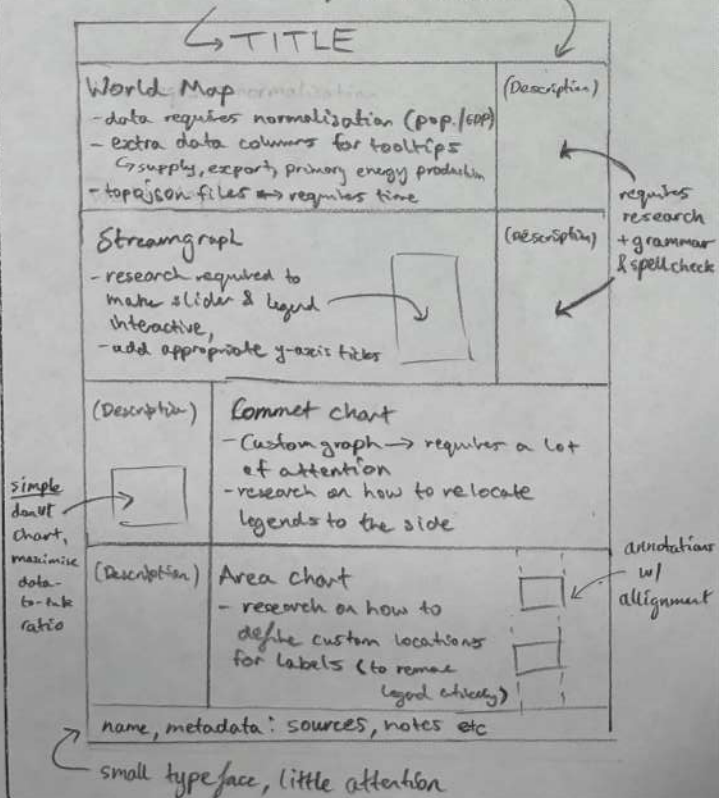 TITLE
World Map
- data requires normalisation (pop./GDP)
- extra data columns for tooltips
supply, export, primary energy production
- topojson files requires time
(Description)
requires
research
+ grammar
& spellcheck
Streamgraph
- research required to
make slider & legend
interactive,
- add appropriate y-axis ticks
(Description)
(Description)
Commet chart
- Custom graph → requires a lot
of attention
- research on how to relocate
legends to the side
simple
donut
chart,
maximise
data-
to-ink
ratio
(Description)
Area chart
- research on how to
define custom locations
for labels (to remove
legend entirely)
annotations
w/
allignment
name, metadata: sources, notes etc
small typeface, little attention